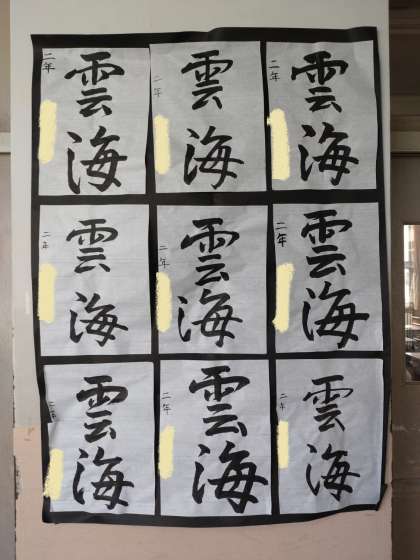 雲海
二年
雲海
二年
雲海
二年
雲海
二年
雲海
二年
雲海
二年
雲海
二年
雲海
二年
雲海
二年